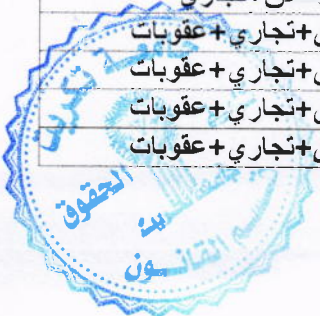 +تجاري+عقوبات
+تجاري+عقوبات
+تجاري+عقوبات
+تجاري+عقوبات
جامعة تكريت
الحقوق
القانون